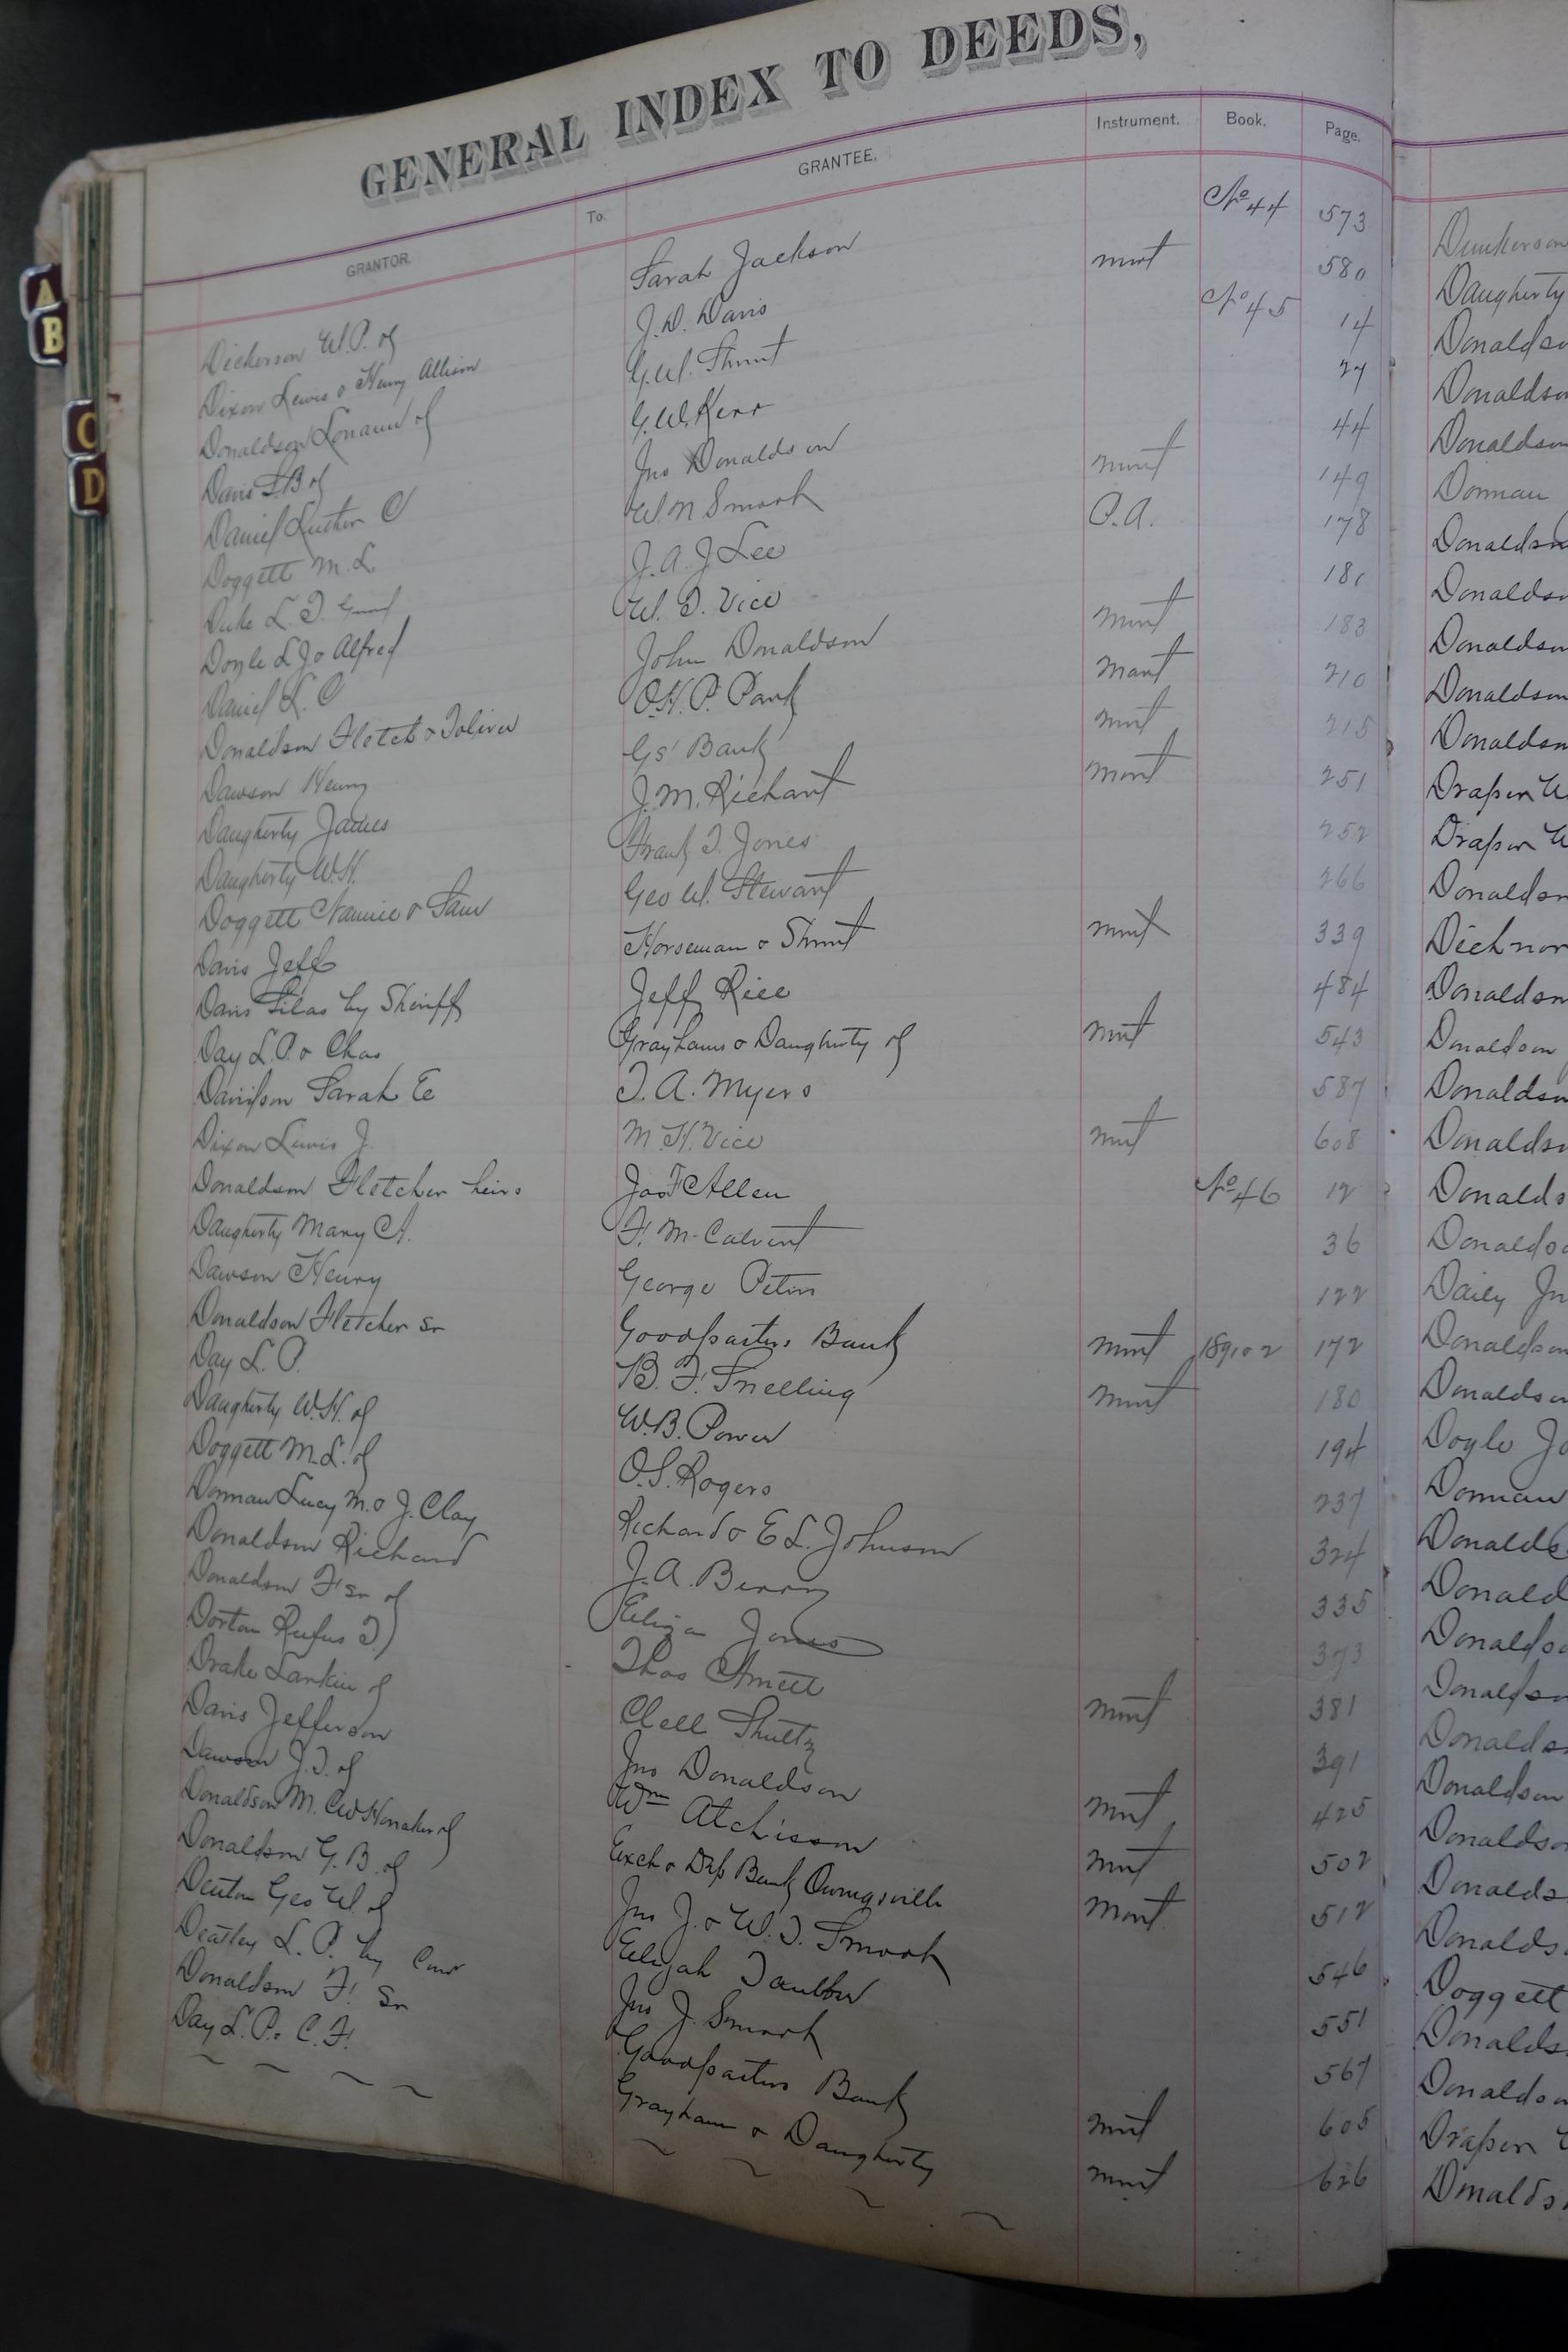 GENERAL INDEX TO DEEDS,
GRANTOR. To. GRANTEE. Instrument. Book. Page.
Dickerson W.P. of Sarah Jackson No 44 573
Dixon Lewis & Henry Allison J.D. Davis mort 580
Donaldson of G.W. Shrout No 45 14
Davis S.B of G.W. Kerr 27
Daniel Luther C Jno Donaldson 44
Doggett M.L. W.N Smoot mort 149
Duke L.T. Guard J.A.J Lee P.A. 178
Doyle L J & Alfred W.T. Vice 181
Daniel L. C John Donaldson mort 183
Donaldson Fletch & Toliver O.H.P. mort 210
Dawson Henry Gs' Bank mort 215
Daugherty James J.M. Richart mort 251
Daugherty W.H. Frank T. Jones 252
Doggett Nannie & Sam Geo W. Stewart 266
Davis Jeff Horseman & Shrout mort 339
Davis Silas by Sheriff Jeff Rice 484
Day L.P. & Chas Grayhams & Daugherty of mort 543
Davidson Sarah E T.A. Myers 587
Dixon Lewis J. M.H. Vice mort 608
Donaldson Fletcher heirs Jas F Allen No 46 12
Daugherty Mary A. F.M. Calvert 36
Dawson Henry George Peters 122
Donaldson Fletcher Sr Goodpasters Bank mort 1891&2 172
Day L.P. B.F. Snelling mort 180
Daugherty W.H. of W.B. Power 194
Doggett M.L. of O.S. Rogers 237
Dorman Lucy M. & J. Clay Richard & E L. Johnson 324
Donaldson Richard J.A. Berry 335
Donaldson F Sr of Eliza Jones 373
Dorton Rufus T. Thos Arnett mort 381
Drake Larkin of Clell Shultz 391
Davis Jefferson Jno Donaldson mort 425
Dawson J.T. of Wm Atchison mort 502
Donaldson M. C W Honaker of Exch & Dep Bank Owingsville mort 512
Donaldson G.B. of Jno J. & W.T. Smoot 546
Denton Geo W of Elijah Taulbee 551
Deatley L.P. by Com Jno J. Smoot 567
Donaldson F. Sr Goodpasters Bank mort 605
Day L.P. & C.F. Grayham & Daugherty mort 626
A
B
C
D
Dunkerson
Daugherty
Donaldso
Donaldson
Donaldson
Dorman
Donaldson
Donaldso
Donaldson
Donaldson
Donaldson
Draper W
Draper W
Donaldson
Dickner
Donaldson
Donaldson
Donaldson
Donaldso
Donalds
Donaldso
Daily Jn
Donaldson
Donaldson
Doyle Jo
Dorman
Donalds
Donald
Donaldso
Donaldso
Donaldso
Donaldson
Donaldso
Donalds
Donalds
Doggett
Donalds
Donaldso
Draper
Donalds